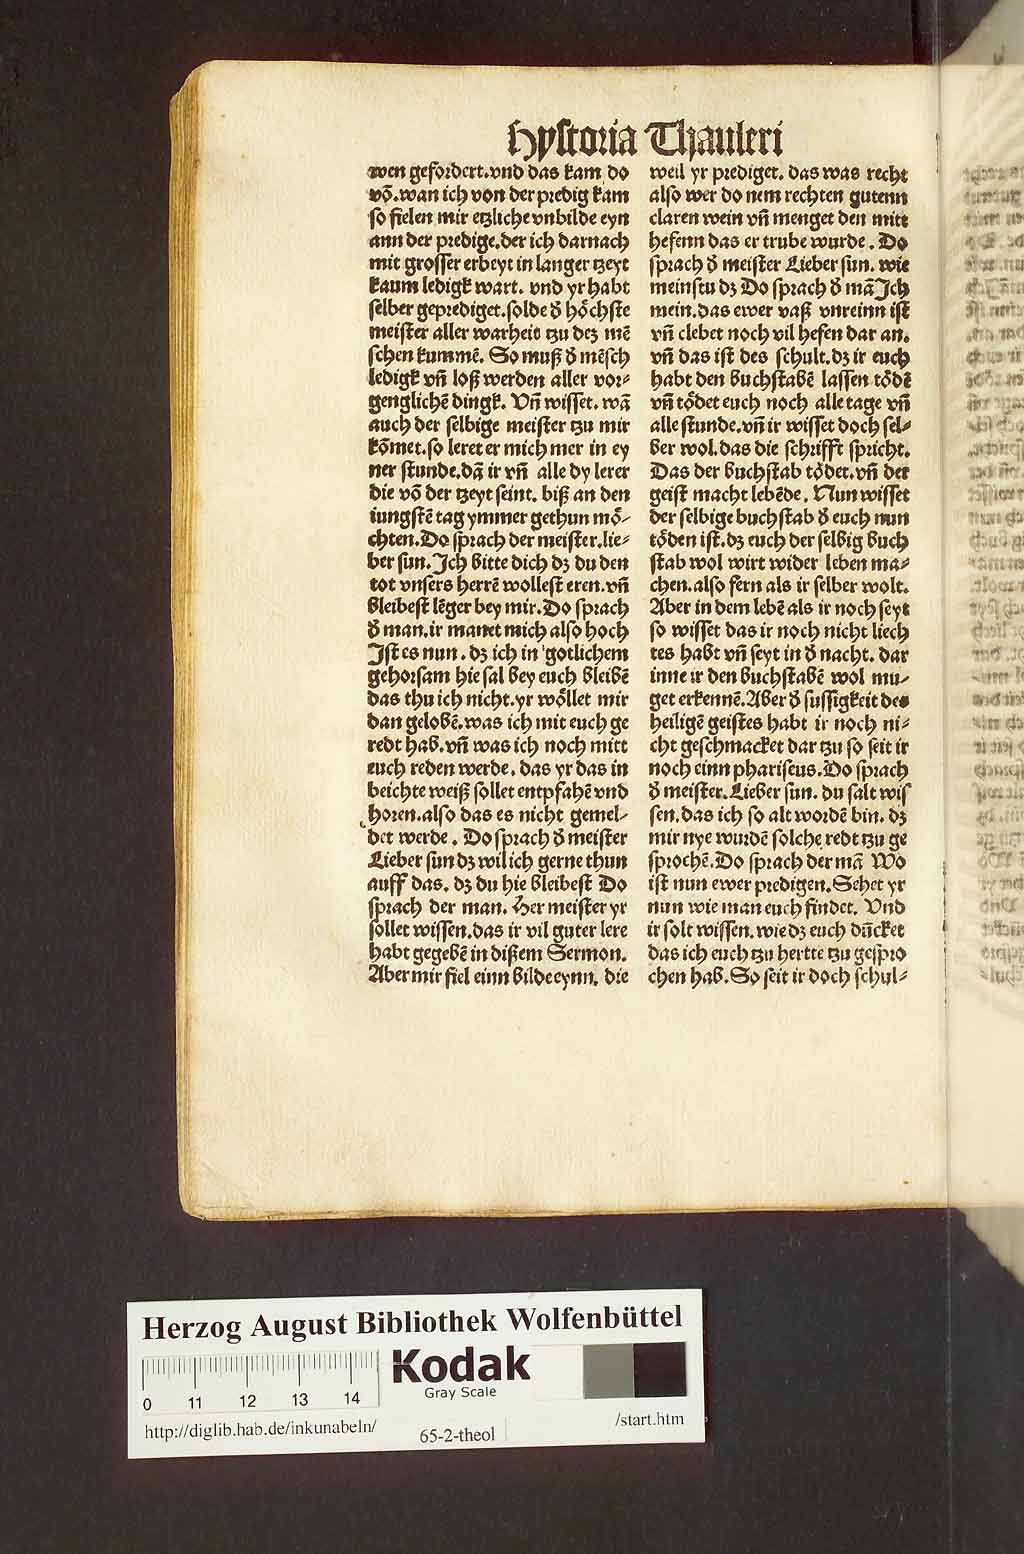 Hystoria Thauleri
wen gefordert.vnd das kam do
võ.wan ich von der predig kam
so fielen mir etzliche vnbilde eyn
ann der predige.der ich darnach
mit grosser erbeyt in langer tzeyt
kaum ledigk wart. vnd yr habt
selber geprediget.solde d̕ hőchste
meister aller warheit tzu dez mē
schen kummē. So muß d̕ mēsch
ledigk vñ loß werden aller vor⸗
genglichē dingk. Vñ wisset. wã
auch der selbige meister tzu mir
kőmet.so leret er mich mer in ey
ner stunde.dã ir vñ alle dy lerer
die võ der tzeyt seint. biß an den
iungstē tag ymmer gethun mő⸗
chten.Do sprach der meister.lie⸗
ber sun. Ich bitte dich dz du den
tot vnsers herrē wollest eren.vñ
bleibest lēger bey mir.Do sprach
d̕ man.ir manet mich also hoch
Ist es nun. dz ich in gotlichem
gehorsam hie sal bey euch bleibē
das thu ich nicht.yr wőllet mir
dan gelobē.was ich mit euch ge
redt hab.vñ was ich noch mitt
euch reden werde. das yr das in
beichte weiß sollet entpfahē vnd
horen.also das es nicht gemel⸗
det werde. Do sprach d̕ meister
Lieber sun dz wil ich gerne thun
auff das. dz du hie bleibest Do
sprach der man. Her meister yr
sollet wissen.das ir vil guter lere
habt gegebē in dißem Sermon.
Aber mir fiel einn bilde eynn. die
weil yr prediget. das was recht
also wer do nem rechten gutenn
claren wein vñ menget den mitt
hefenn das er trube wurde. Do
sprach d̕ meister Lieber sun. wie
meinstu dz Do sprach d̕ mã Ich
mein.das ewer vaß vnreinn ist
vñ clebet noch vil hefen dar an.
vñ das ist des schult.dz ir euch
habt den buchstabē lassen tődē
vñ tődet euch noch alle tage vñ
alle stunde.vñ ir wisset doch sel⸗
ber wol.das die schrifft spricht.
Das der buchstab tődet.vñ der
geist macht lebēde. Nun wisset
der selbige buchstab d̕ euch nun
tőden ist.dz euch der selbig buch
stab wol wirt wider leben ma⸗
chen.also fern als ir selber wolt.
Aber in dem lebē als ir noch seyt
so wisset das ir noch nicht liech
tes habt vñ seyt in d̕ nacht. dar
inne ir den buchstabē wol mu⸗
get erkennē.Aber d̕ sussigkeit des
heiligē geistes habt ir noch ni⸗
cht geschmacket dar tzu so seit ir
noch einn phariseus.Do sprach
d̕ meister.Lieber sun. du salt wis
sen.das ich so alt wordē bin. dz
mir nye wurdē solche redt tzu ge
sprochē.Do sprach der mã Wo
ist nun ewer predigen.Sehet yr
nun wie man euch findet. Vnd
ir solt wissen.wie dz euch dũcket
das ich euch tzu hertte tzu gespro
chen hab.So seit ir doch schul⸗
Herzog August Bibliothek Wolfenbüttel
Kodak
Gray Scale
0 11 12 13 14
http://diglib.hab.de/inkunabeln/
65-2-theol
/start.htm